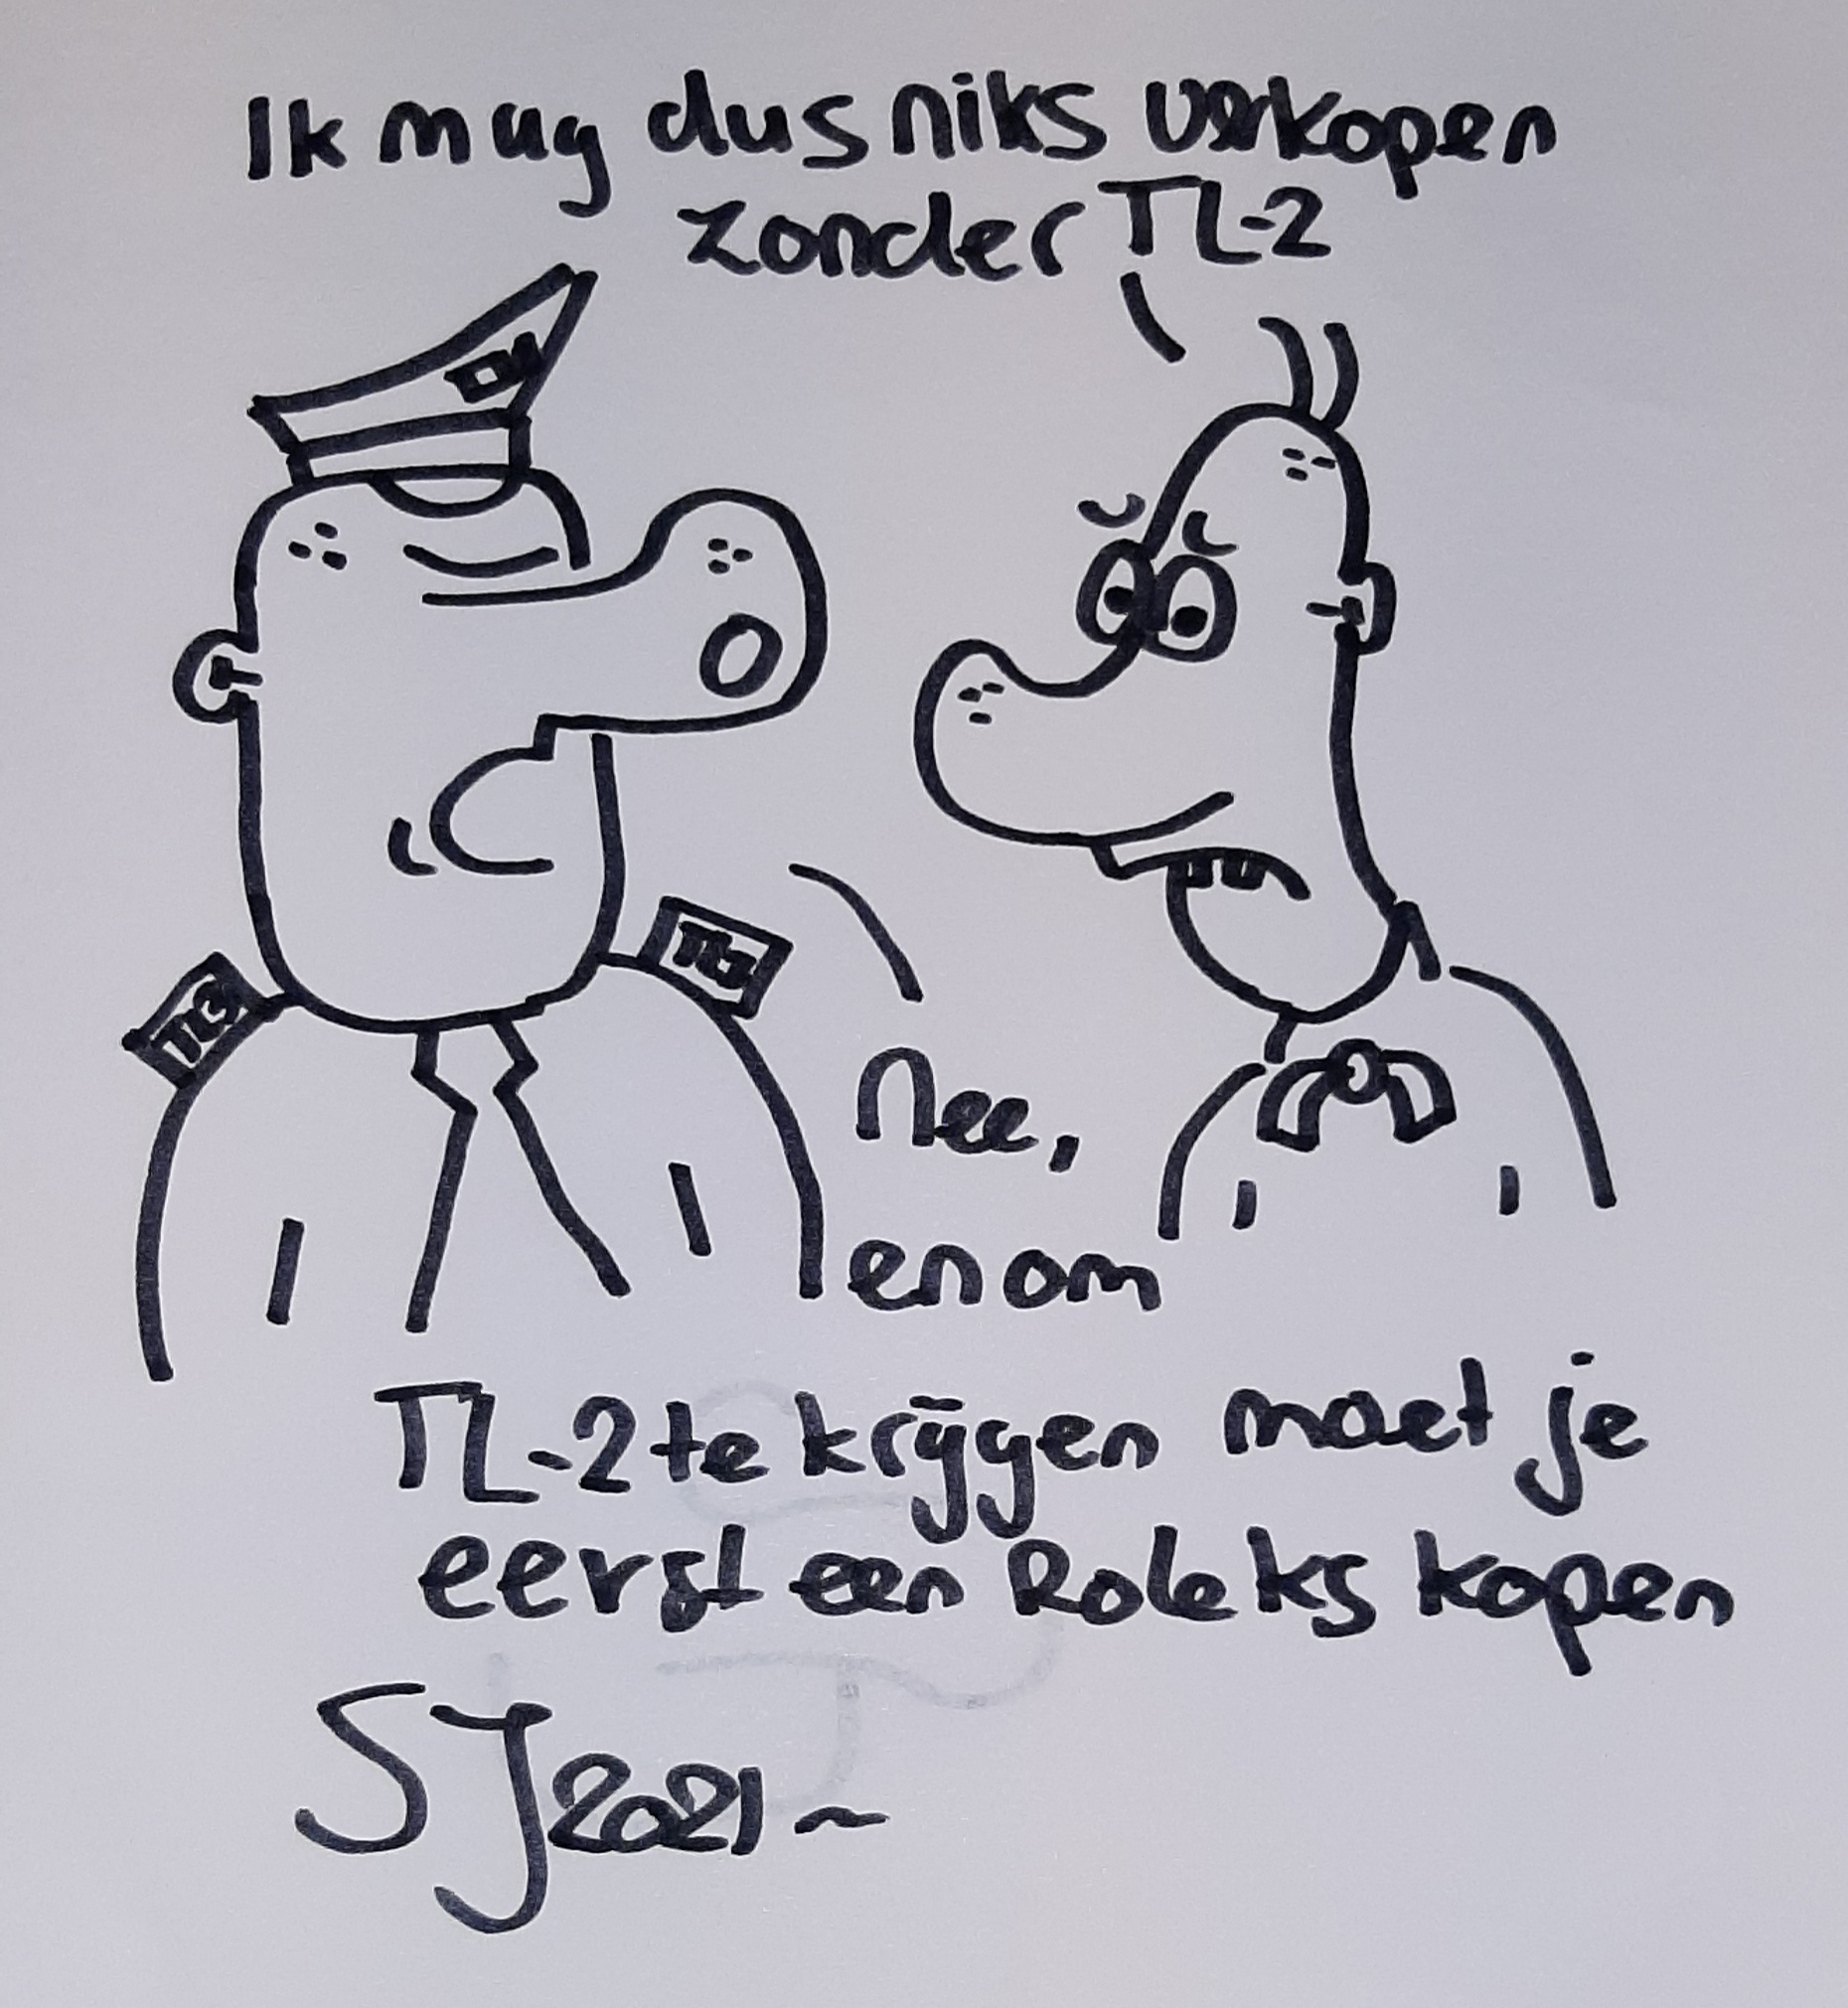 Ik mag dus niks verkopen
zonder TL-2
TL3
Nee,
en om
TL-2 te krijgen moet je
eerst een Roleks kopen
SJ 2021~